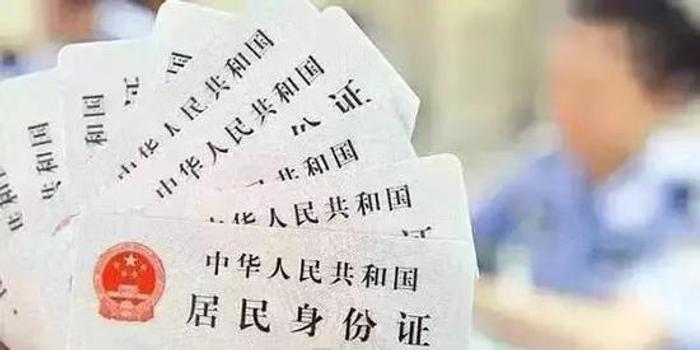 和国
国
共和国
中华人民共和国
中华人民共和国
证
共和国
中华人民共和国
证
中华人民共和国
居民身份证